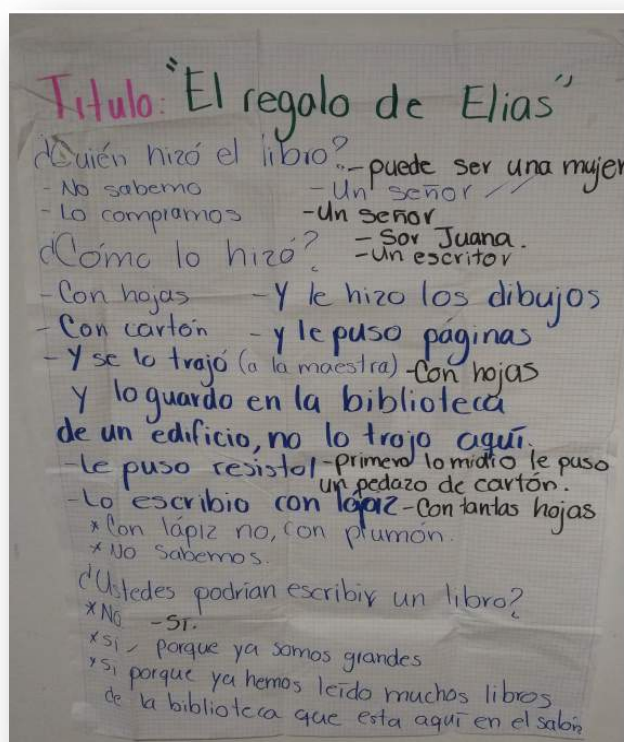 Titulo: "El regalo de Elias"
¿Quién hizó el libro? - puede ser una mujer
- No sabemo - Un señor
- Lo compramos - Un señor
- Sor Juana.
¿Cómo lo hizó? - Un escritor
- Con hojas - Y le hizo los dibujos
- Con cartón - y le puso páginas
- Y se lo trajó (a la maestra) - Con hojas
y lo guardo en la biblioteca
de un edificio, no lo trajo aquí.
- le puso resistol - primero lo midio le puso
un pedazo de cartón.
- Lo escribio con lápiz - Con tantas hojas
* Con lápiz no, con plumón.
* No sabemos.
¿Ustedes podrían escribir un libro?
* No - SI.
* si, porque ya somos grandes
* Si porque ya hemos leído muchos libros
de la biblioteca que esta aquí en el salón